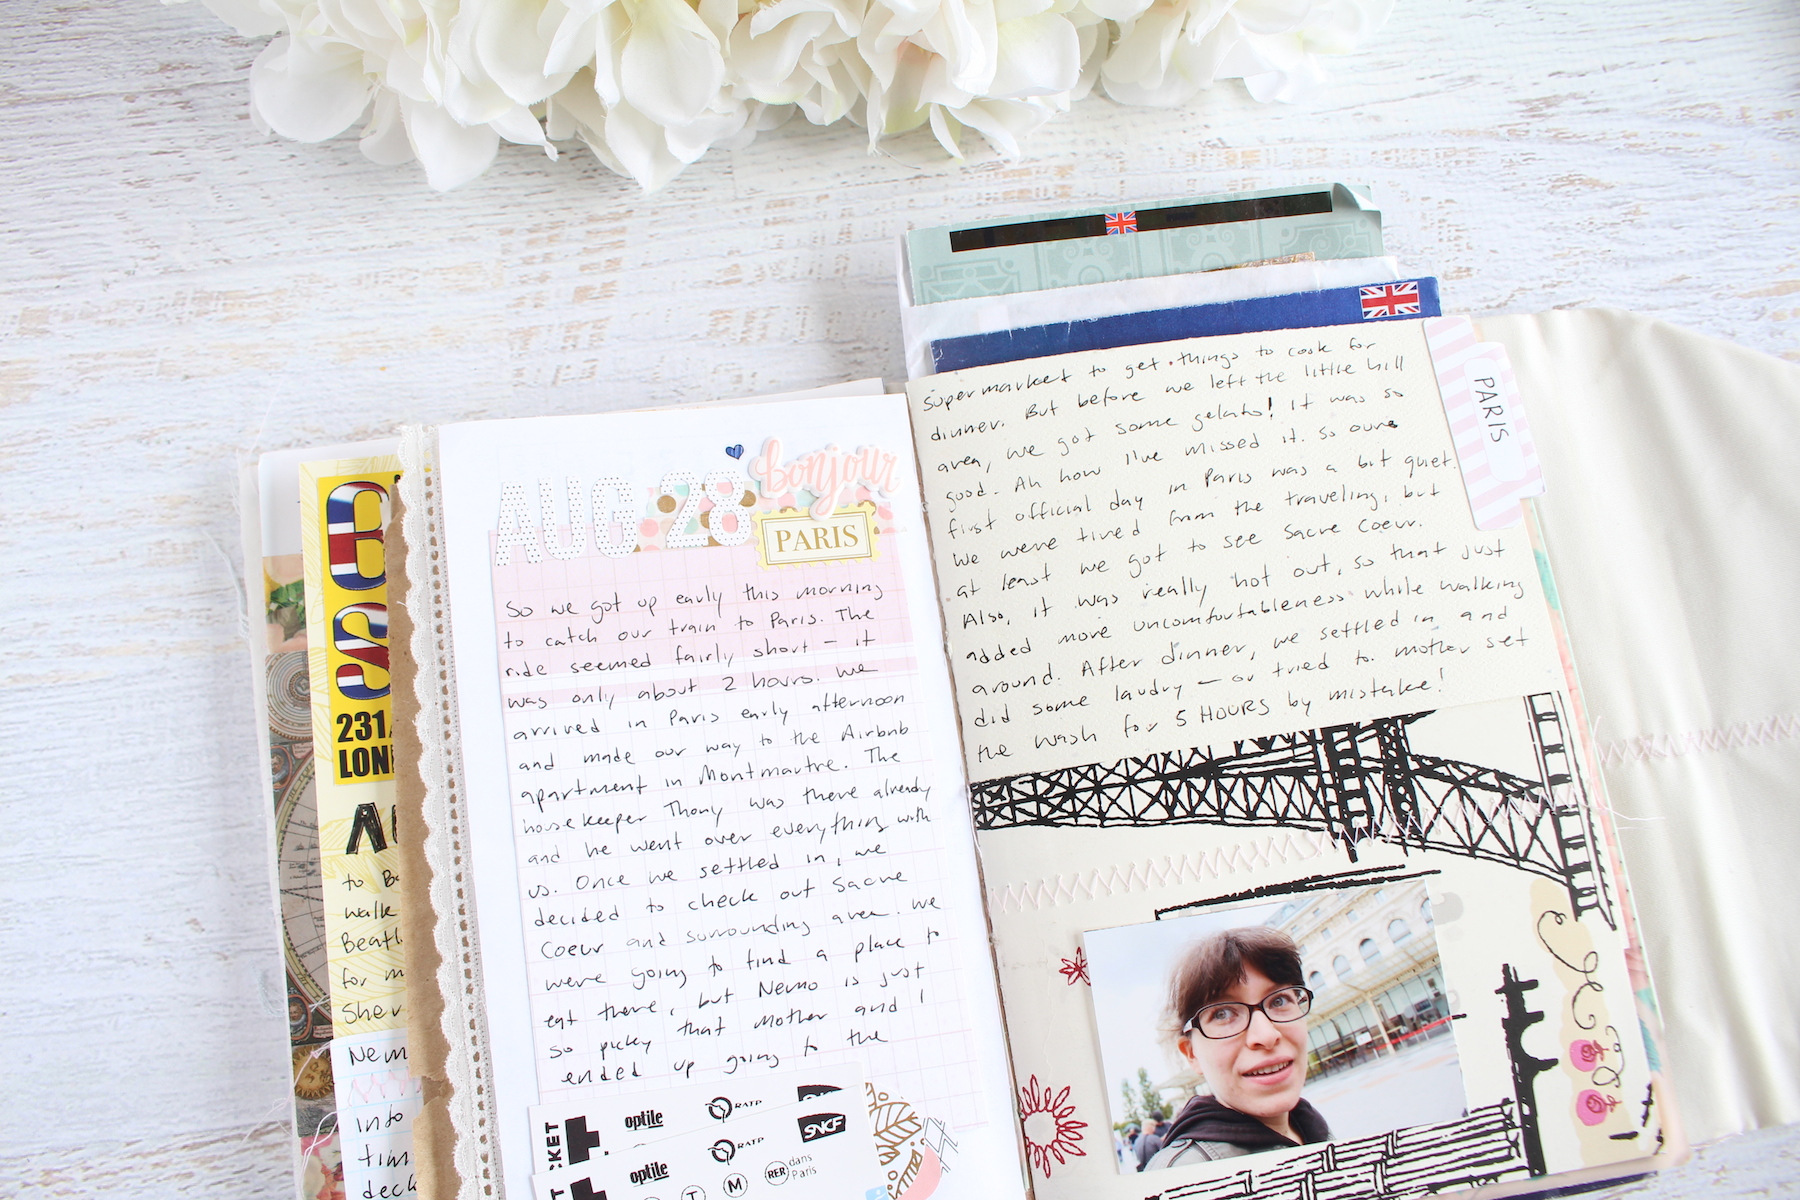 231
LON
A
to B
walk
Beatl
for m
Sher
Nem
into
tim
deck
AUG 28
bonjour
PARIS
So we got up early this morning
to catch our train to Paris. The
ride seemed fairly short – it
was only about 2 hours. We
arrived in Paris early afternoon
and made our way to the Airbnb
apartment in Montmartre. The
housekeeper Thony was there already
and he went over everything with
us. Once we settled in, we
decided to check out Sacre
Coeur and surrounding area. We
were going to find a place to
eat there, but Nemo is just
so picky that mother and I
ended up going to the
CKET
optile
RATP
SNCF
optile
RATP
SNCF
T M RER dans
Paris
supermarket to get things to cook for
dinner. But before we left the little hill
area, we got some gelato! It was so
good. Ah how I've missed it. So our
first official day in Paris was a bit quiet.
We were tired from the traveling, but
at least we got to see Sacre Coeur.
Also, it was really hot out, so that just
added more uncomfortableness while walking
around. After dinner, we settled in and
did some laudry – or tried to. Mother set
the wash for 5 HOURS by mistake!
PARIS